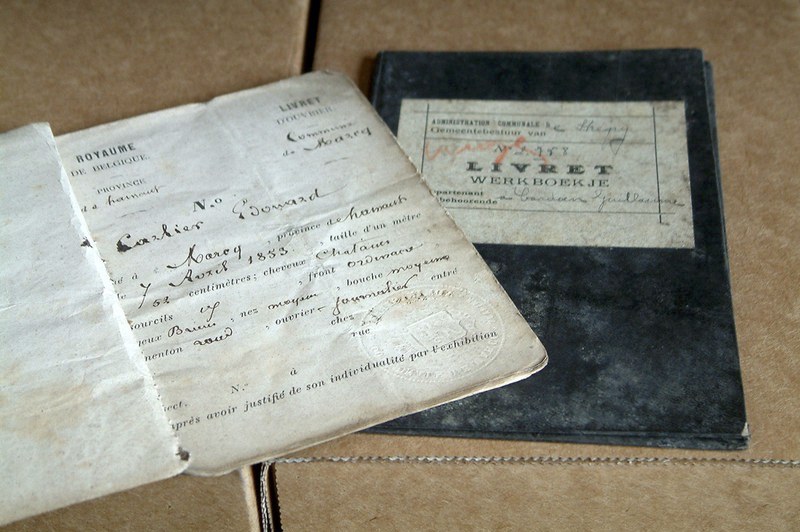 ROYAUME
DE BELGIQUE.
PROVINCE
de hainaut
LIVRET
D'OUVRIER.
Commune
de Marcq
N.o
Carlier Edouard
né à Marcq, province de hainaut
le 7 Avril 1833, taille d'un mètre
752 centimètres; cheveux Chatains
sourcils id, front ordinaire
yeux Bruns, nez moyen, bouche moyenne
menton rond, ouvrier journalier entré
chez
rue
N.o à
après avoir justifié de son individualité par l'exhibition
ADMINISTRATION COMMUNALE
Gemeentebestuur van
LIVRET
WERKBOEKJE
appartenant
behoorende à Guillaume